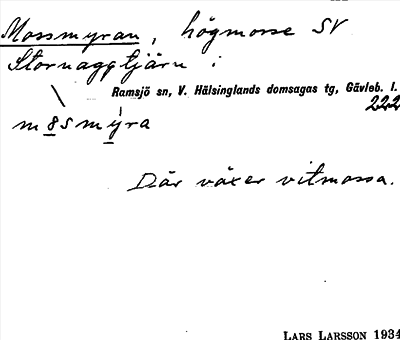 Mossmyran, högmosse SV
Stornaggtjärn i
Ramsjö sn, V. Hälsinglands domsagas tg, Gävleb. l.
222
\
m8smýra
Där växer vitmossa.
LARS LARSSON 1934